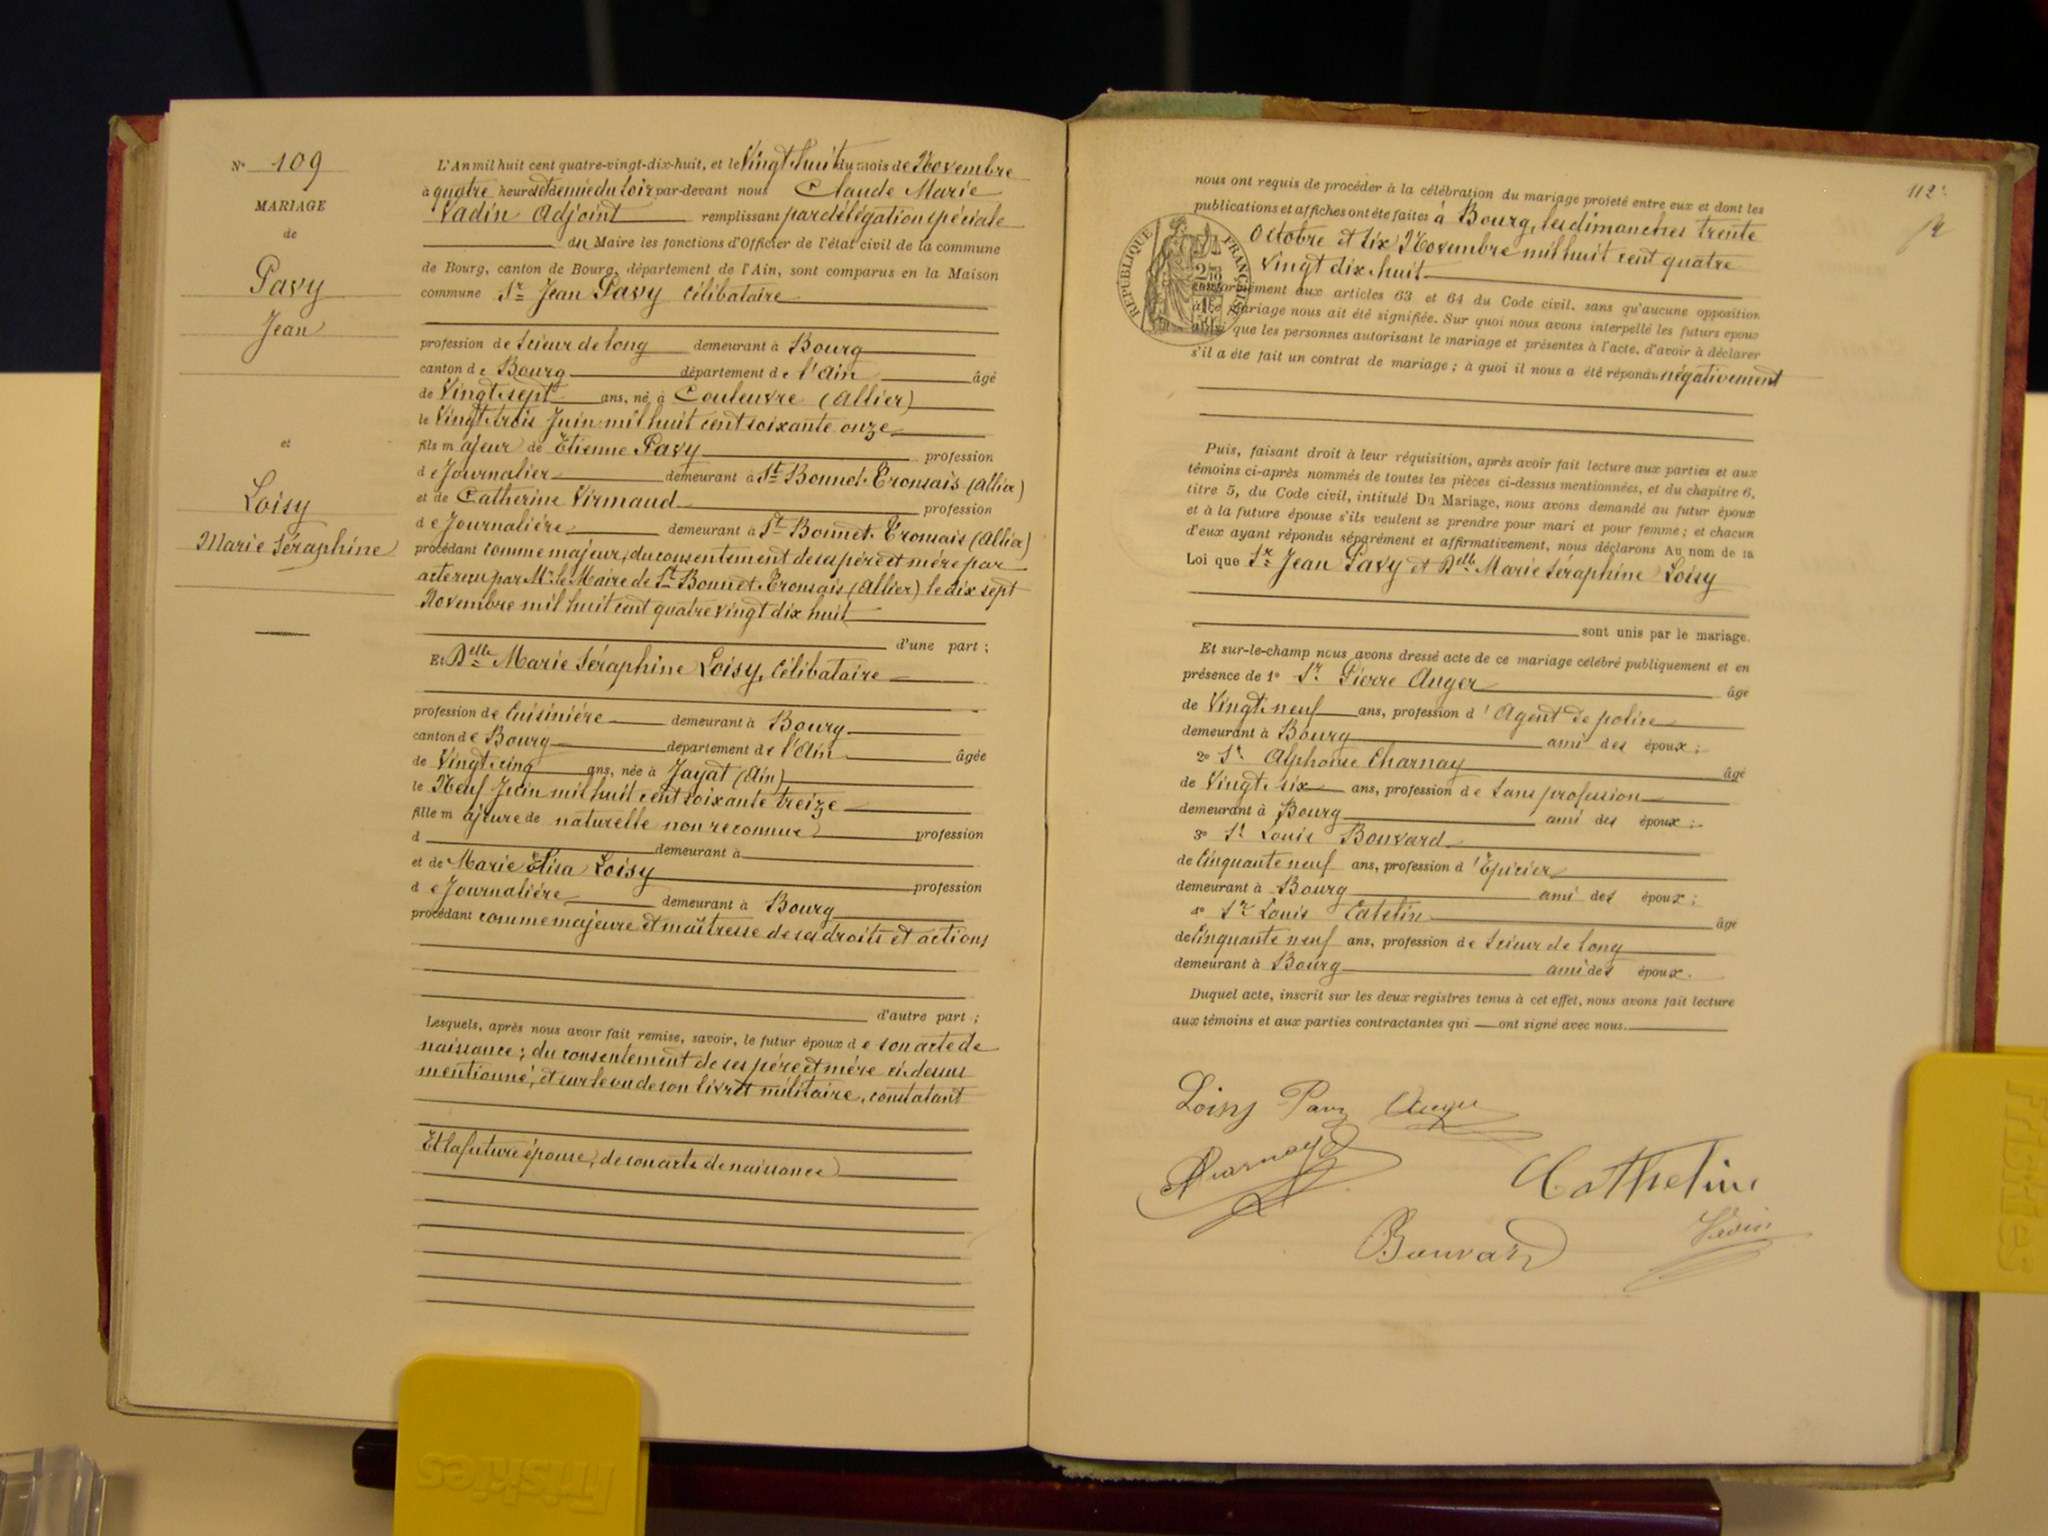 N° 109
MARIAGE
de
Pavy
Jean
et
Loisy
Marie Séraphine
L'An mil huit cent quatre-vingt-dix-huit, et le Vingt-huit du mois de Novembre
à quatre heures et demie du soir par-devant nous Claude Marie
Vadin Adjoint remplissant par délégation spéciale
du Maire les fonctions d'Officier de l'état civil de la commune
de Bourg, canton de Bourg, département de l'Ain, sont comparus en la Maison
commune Sr Jean Pavy célibataire
profession de Scieur de long demeurant à Bourg
canton de Bourg département de l'Ain âgé
de Vingt-sept ans, né à Couleuvre (Allier)
le Vingt-trois Juin mil huit cent soixante onze
fils majeur de Etienne Pavy profession
de Journalier demeurant à St Bonnet-Tronsais (Allier)
et de Catherine Virmaud profession
de Journalière demeurant à St Bonnet-Tronsais (Allier)
procédant comme majeur, du consentement de ses père et mère par
acte reçu par Mr le Maire de St Bonnet-Tronsais (Allier) le dix sept
Novembre mil huit cent quatre vingt dix huit
d'une part ;
Et Delle Marie Séraphine Loisy, célibataire
profession de Cuisinière demeurant à Bourg
canton de Bourg département de l'Ain âgée
de Vingt-cinq ans, née à Jayat (Ain)
le Neuf Juin mil huit cent soixante treize
fille majeure de naturelle non reconnue profession
d demeurant à
et de Marie Élisa Loisy profession
de Journalière demeurant à Bourg
procédant comme majeure et maîtresse de ses droits et actions
d'autre part ;
Lesquels, après nous avoir fait remise, savoir, le futur époux de son acte de
naissance ; du consentement de ses père et mère ci-dessus
mentionné, et sur le vu de son livret militaire, constatant
Et la future épouse, de son acte de naissance
112
nous ont requis de procéder à la célébration du mariage projeté entre eux et dont les
publications et affiches ont été faites à Bourg, les dimanches trente
Octobre et six Novembre mil huit cent quatre
Vingt dix-huit
RÉPUBLIQUE FRANÇAISE
conformément aux articles 63 et 64 du Code civil, sans qu'aucune opposition
à ce mariage nous ait été signifiée. Sur quoi nous avons interpellé les futurs époux
ainsi que les personnes autorisant le mariage et présentes à l'acte, d'avoir à déclarer
s'il a été fait un contrat de mariage ; à quoi il nous a été répondu négativement
Puis, faisant droit à leur réquisition, après avoir fait lecture aux parties et aux
témoins ci-après nommés de toutes les pièces ci-dessus mentionnées, et du chapitre 6,
titre 5, du Code civil, intitulé Du Mariage, nous avons demandé au futur époux
et à la future épouse s'ils veulent se prendre pour mari et pour femme ; et chacun
d'eux ayant répondu séparément et affirmativement, nous déclarons Au nom de la
Loi que Sr Jean Pavy et Delle Marie Séraphine Loisy
sont unis par le mariage.
Et sur-le-champ nous avons dressé acte de ce mariage célébré publiquement et en
présence de 1° Sr Pierre Auger âgé
de Vingt-neuf ans, profession d'Agent de police
demeurant à Bourg ami des époux ;
2° Sr Alphonse Charnay âgé
de Vingt-six ans, profession de sans profession
demeurant à Bourg ami des époux ;
3° Sr Louis Bouvard
de Cinquante neuf ans, profession d'Epicier
demeurant à Bourg ami des époux ;
4° Sr Louis Catelin âgé
de Cinquante neuf ans, profession de Scieur de long
demeurant à Bourg ami des époux.
Duquel acte, inscrit sur les deux registres tenus à cet effet, nous avons fait lecture
aux témoins et aux parties contractantes qui ont signé avec nous.
Loisy Pavy Auger
Charnay
Cathelin
Bouvard
Vadin
Friskies
Friskies